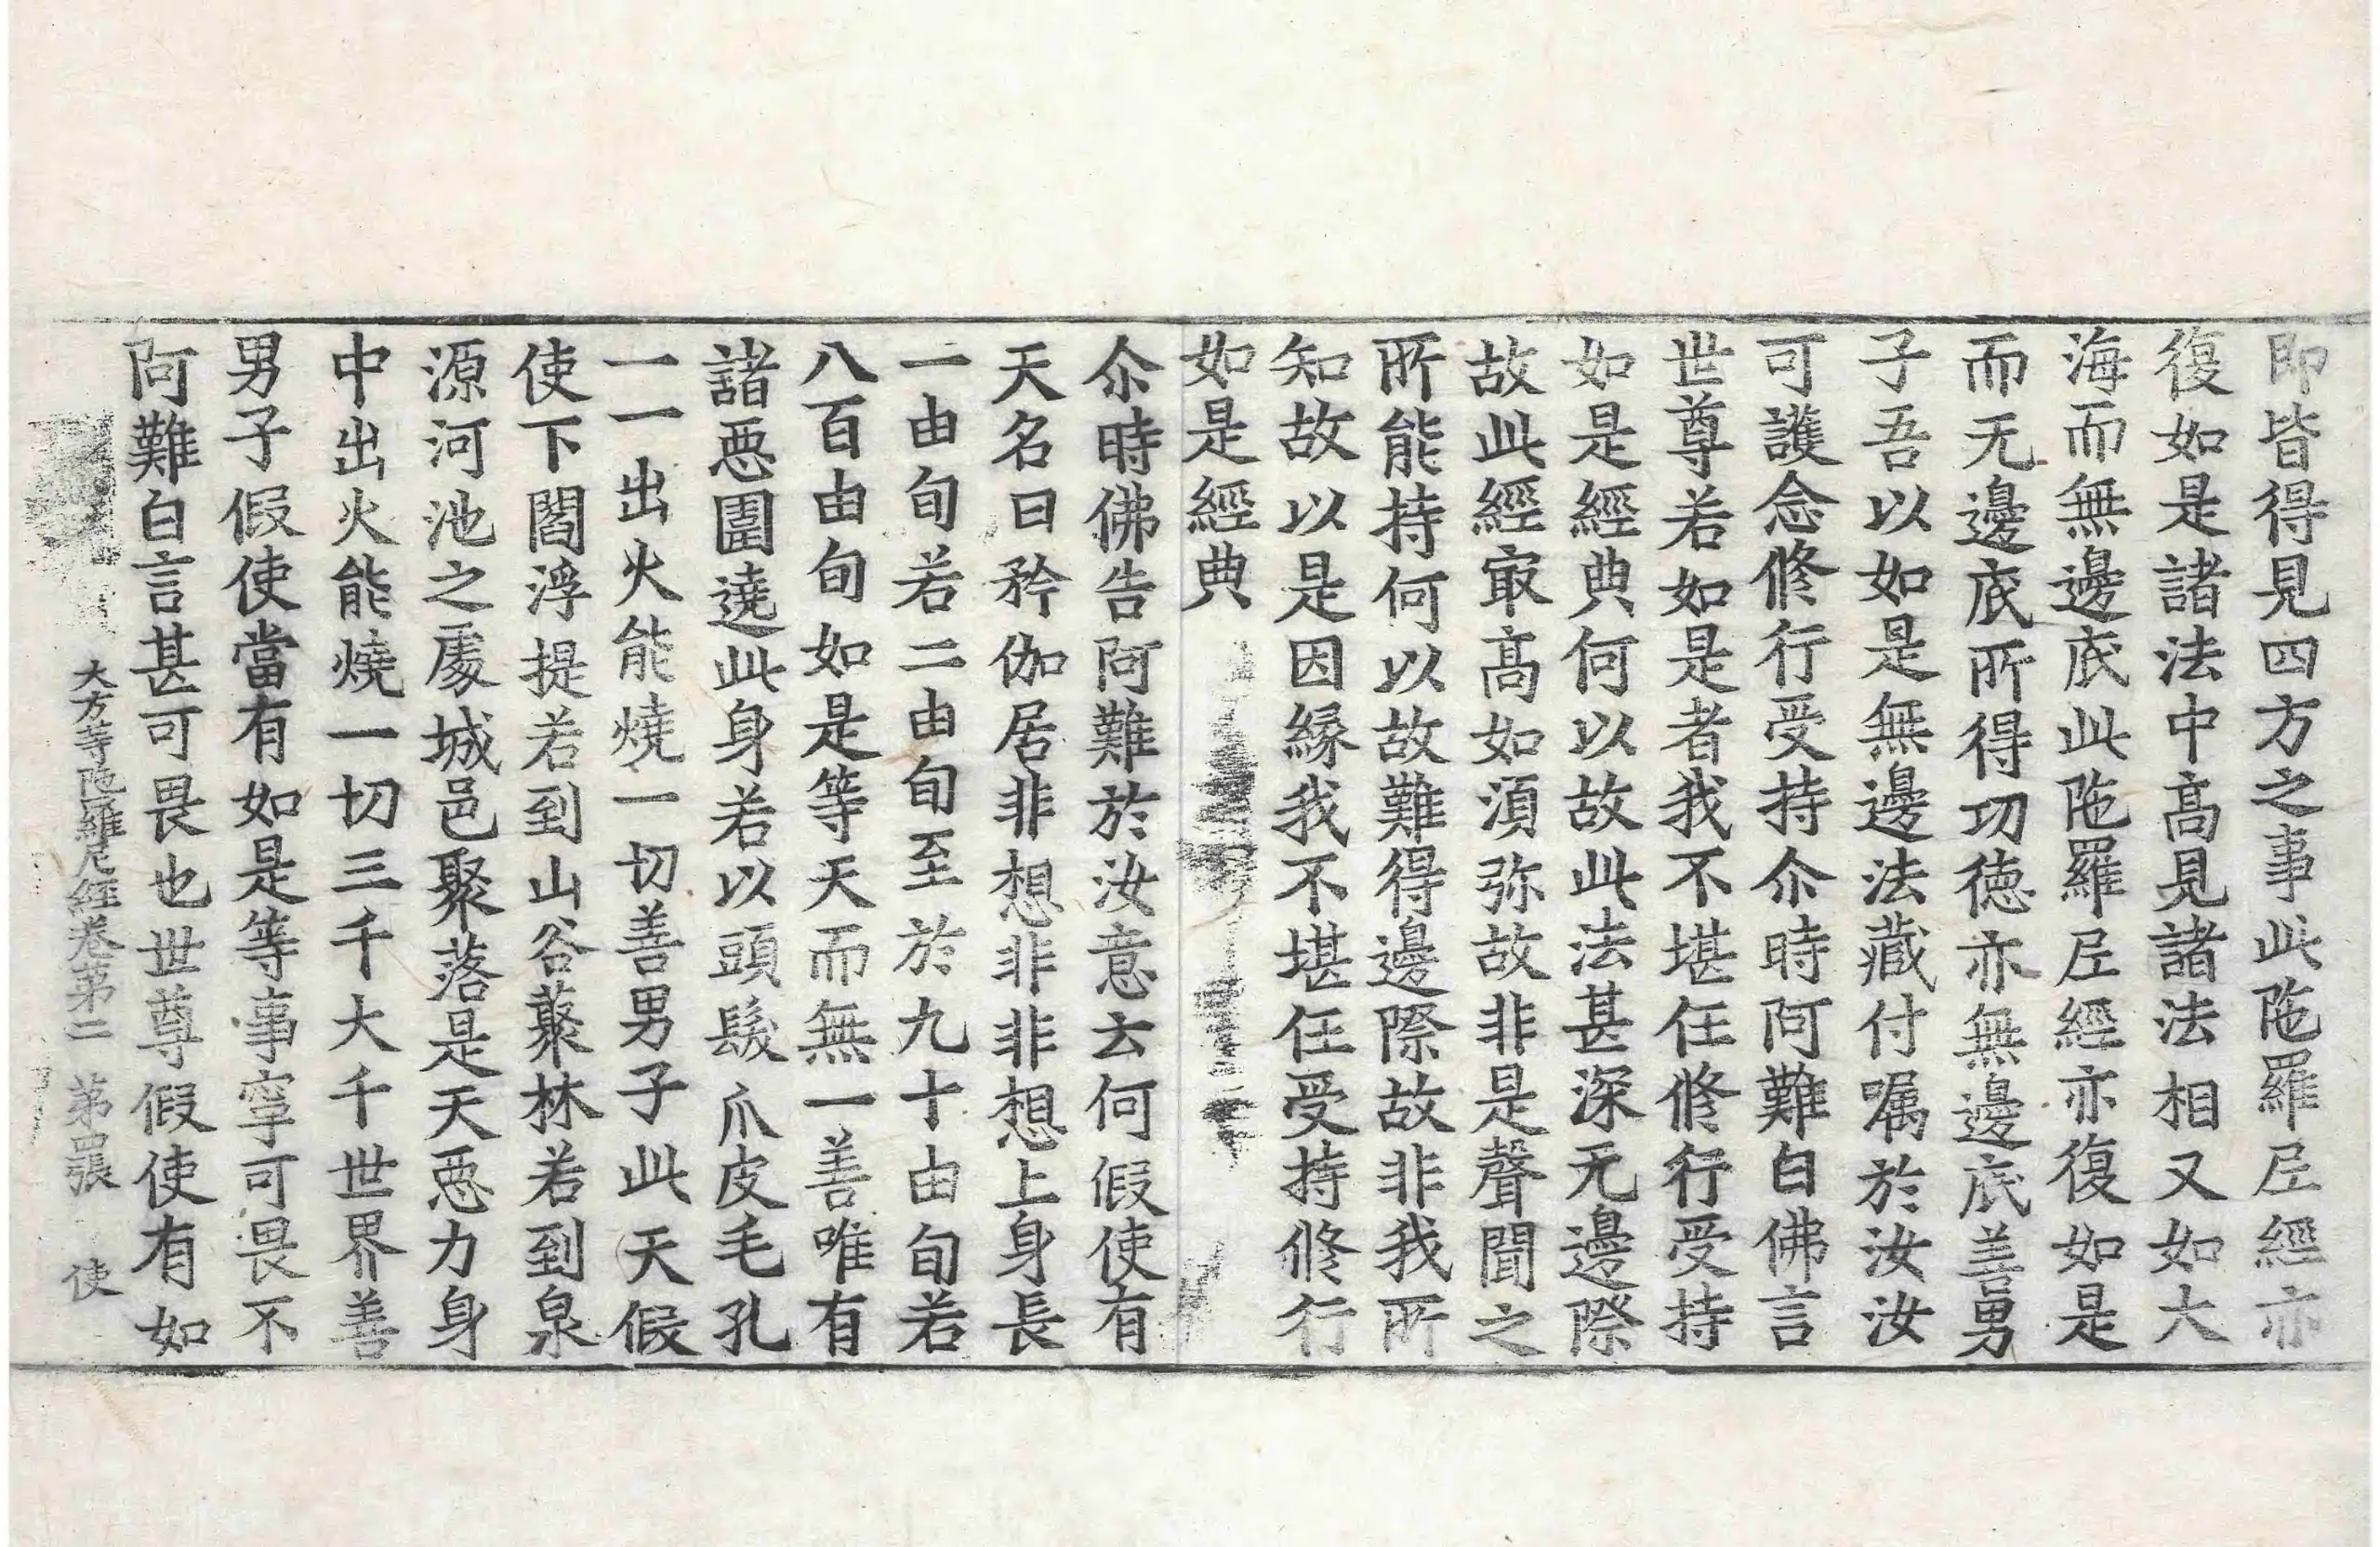 即皆得見四方之事此陁羅𡰱經亦
復如是諸法中髙見諸法相又如大
海而無邊底此陁羅𡰱經亦復如是
而无邊底所得功德亦無邊底善男
子吾以如是無邊法藏付嘱於汝汝
可護念修行受持尒時阿難白佛言
世尊若如是者我不堪任修行受持
如是經典何以故此法甚深无邊際
故此經㝡髙如湏弥故非是聲聞之
所能持何以故難得邊際故非我所
知故以是因縁我不堪任受持修行
如是經典
尒時佛告阿難於汝意云何假使有
天名曰矜伽居非想非非想上身長
一由旬若二由旬至於九十由旬若
八百由旬如是等天而無一善唯有
諸惡圍遶此身若以頭髮爪皮毛孔
一一出火能燒一切善男子此天假
使下閻浮提若到山谷藂林若到泉
源河池之處城邑聚落是天惡力身
中出火能燒一切三千大千世界善
男子假使當有如是等事寧可畏不
阿難白言甚可畏也世尊假使有如
大方等陁羅尼經卷第二 第四張 使